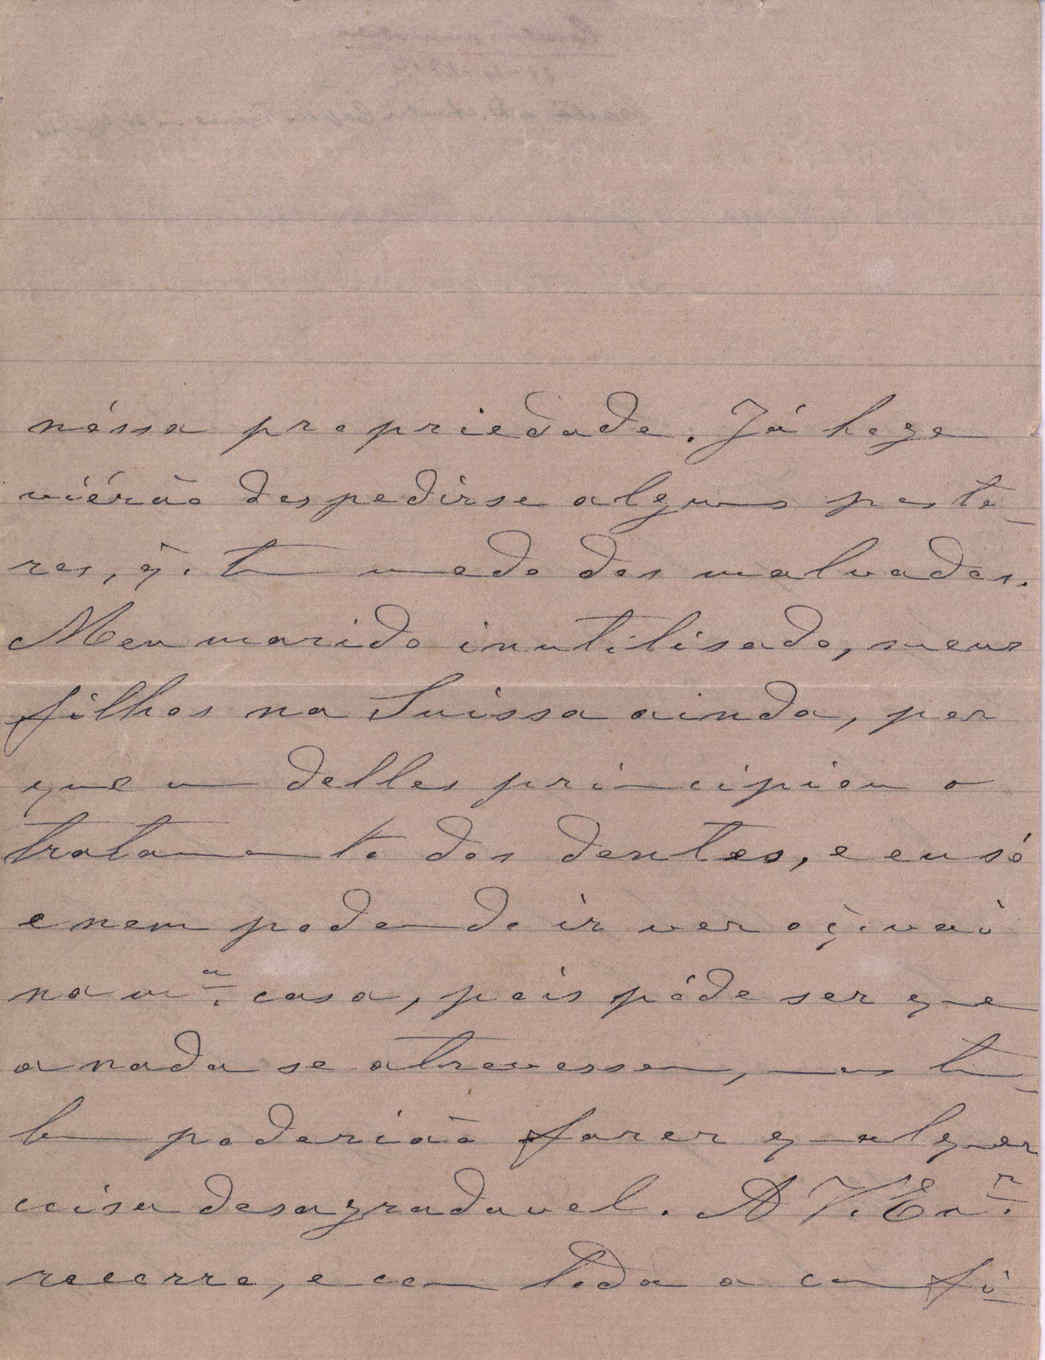 nóssa propriedade. Já hoge
viérão despedirse alguns pasto-
res, q̃. tem medo dos malvados.
Meu marido inutilisado, meus
filhos na Suissa ainda, por
que um delles principiou o
tratamento dos dentes, e eu só
e nem podendo ir ver o q̃. vai
na mª. casa, pois póde ser que
a nada se atrevessem, mas tam-
bem poderião fazer qualquer
coisa desagradavel. A V. Exª.
recorro, e com toda a confi-